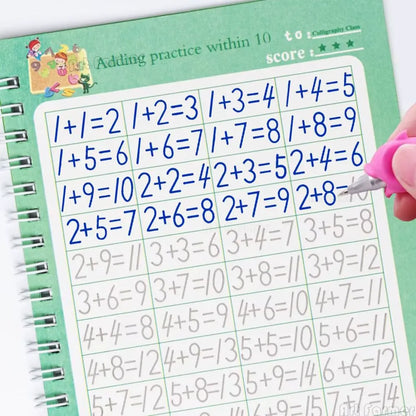 Adding practice within 10
to: Calligraphy Class
score: ★ ★ ★
1+1=2 1+2=3 1+3=4 1+4=5
1+5=6 1+6=7 1+7=8 1+8=9
1+9=10 2+2=4 2+3=5 2+4=6
2+5=7 2+6=8 2+7=9 2+8=10
2+9=11 3+3=6 3+4=7 3+5=8
3+6=9 3+7=10 3+8=11 3+9=12
4+4=8 4+5=9 4+6=10 4+7=11
4+8=12 4+9=13 5+5=10 5+6=11
5+7=12 5+8=13 5+9=14 6+6=12
6+7=13 6+8=14 6+9=15 7+7=14